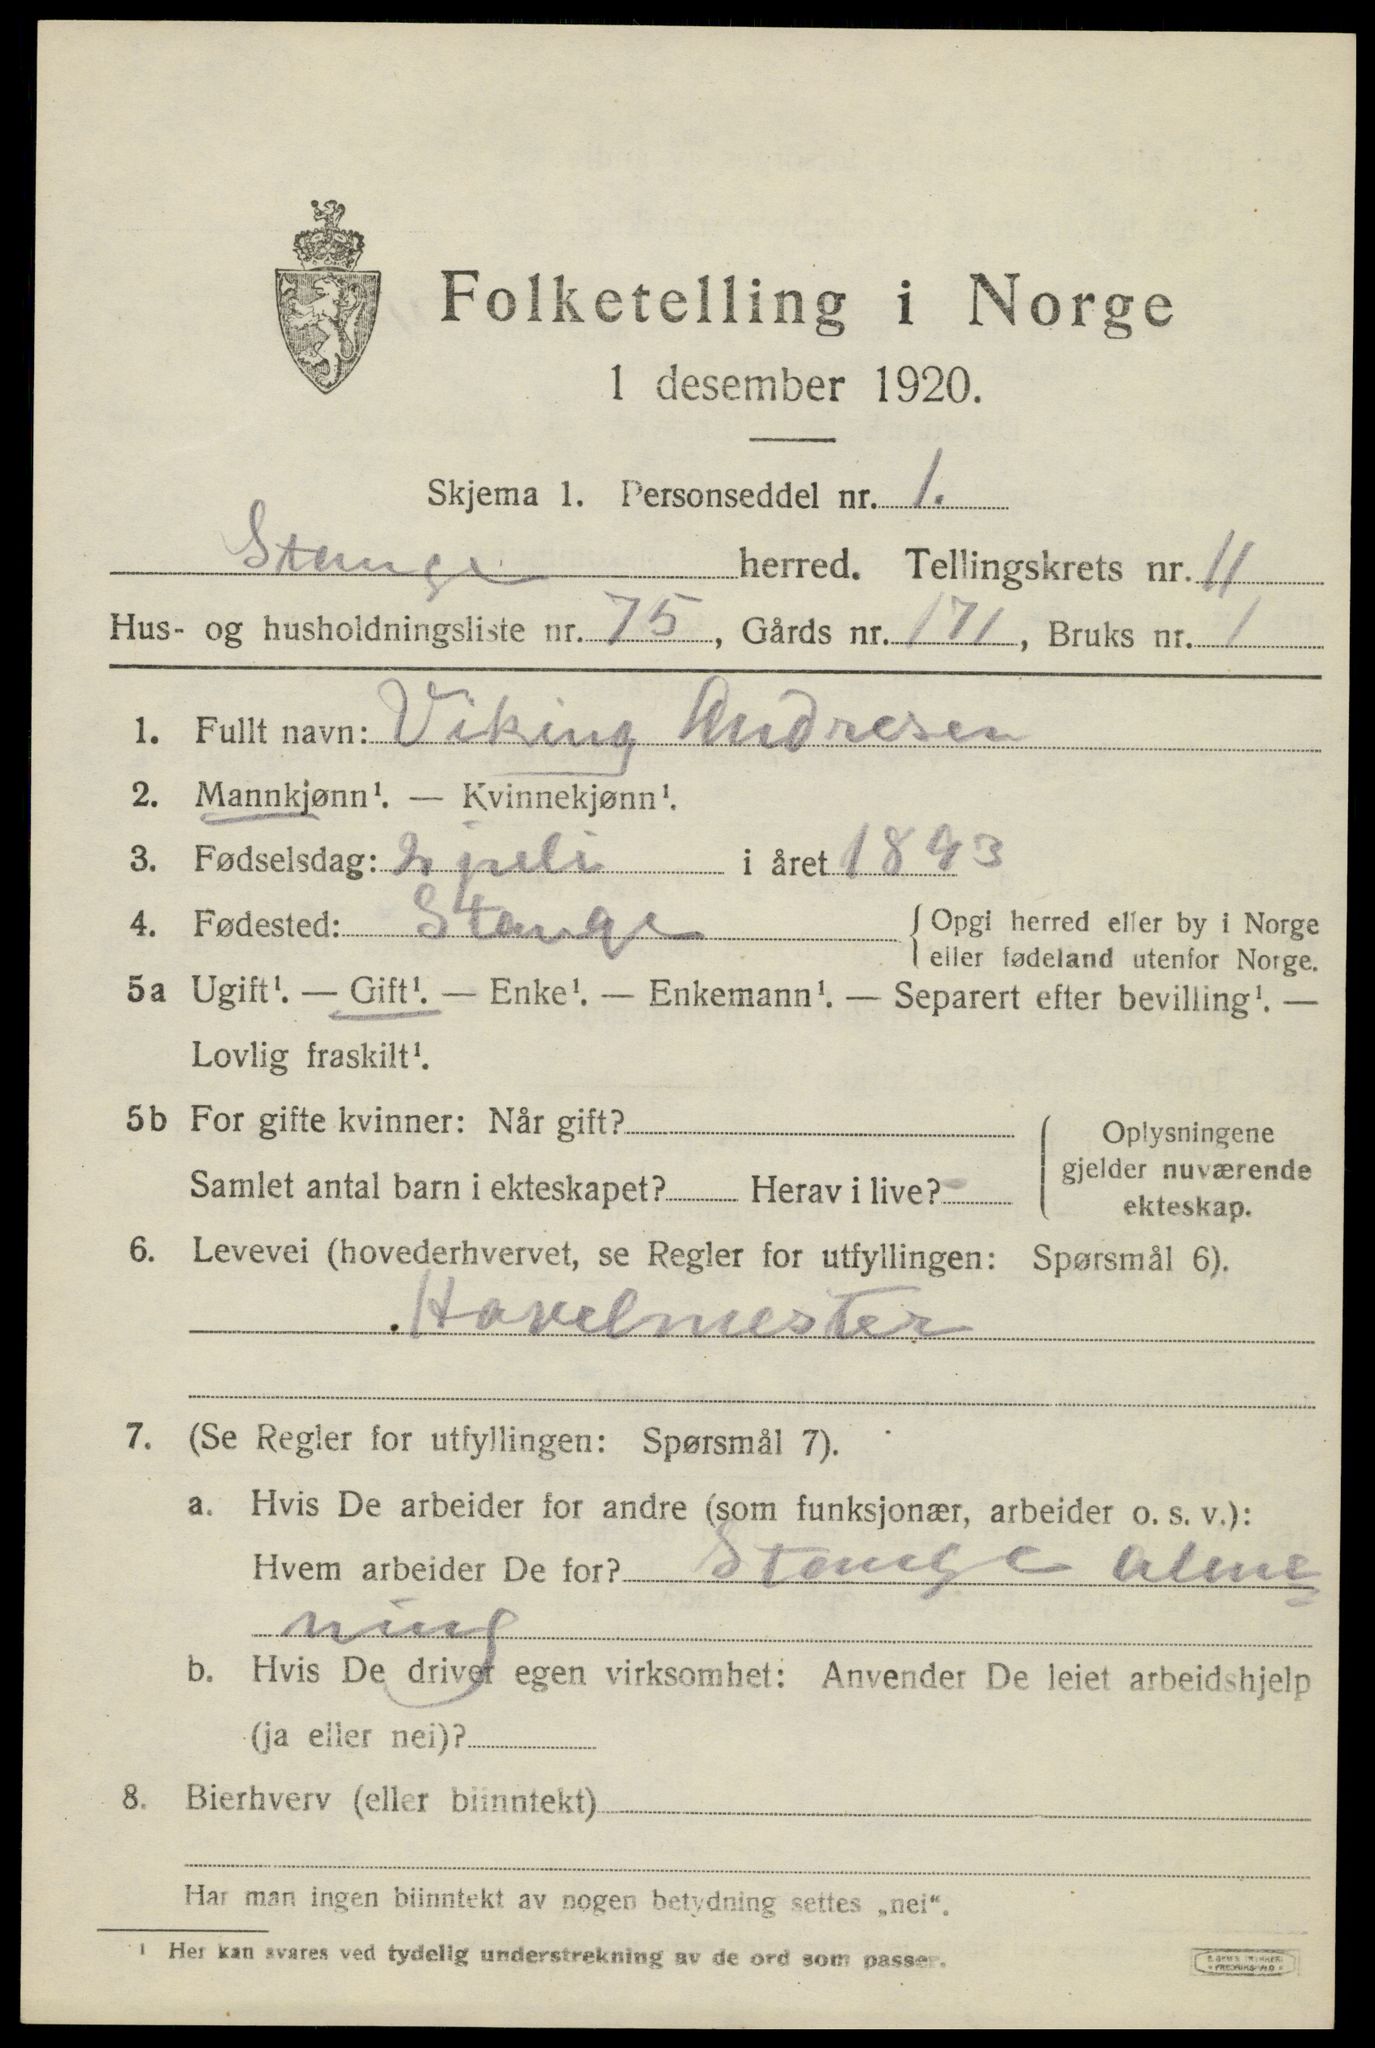 Folketelling i Norge
1 desember 1920.
Skjema 1. Personseddel nr. 1.
Stange herred. Tellingskrets nr. 11
Hus- og husholdningsliste nr. 75, Gårds nr. 171, Bruks nr. 1
1. Fullt navn: Viking Andresen
2. Mannkjønn¹. — Kvinnekjønn¹.
3. Fødselsdag: 2 juli i året 1893
4. Fødested: Stange { Opgi herred eller by i Norge
eller fødeland utenfor Norge.
5a Ugift¹. — Gift¹. — Enke¹. — Enkemann¹. — Separert efter bevilling¹. —
Lovlig fraskilt¹.
5b For gifte kvinner: Når gift?
Samlet antal barn i ekteskapet? Herav i live?
Oplysningene
gjelder nuværende
ekteskap.
6. Levevei (hovederhvervet, se Regler for utfyllingen: Spørsmål 6).
Høvelmester
7. (Se Regler for utfyllingen: Spørsmål 7).
a. Hvis De arbeider for andre (som funksjonær, arbeider o. s. v.):
Hvem arbeider De for? Stange Alme=
ning
b. Hvis De driver egen virksomhet: Anvender De leiet arbeidshjelp
(ja eller nei)?
8. Bierhverv (eller biinntekt)
Har man ingen biinntekt av nogen betydning settes „nei“.
¹ Her kan svares ved tydelig understrekning av de ord som passer.